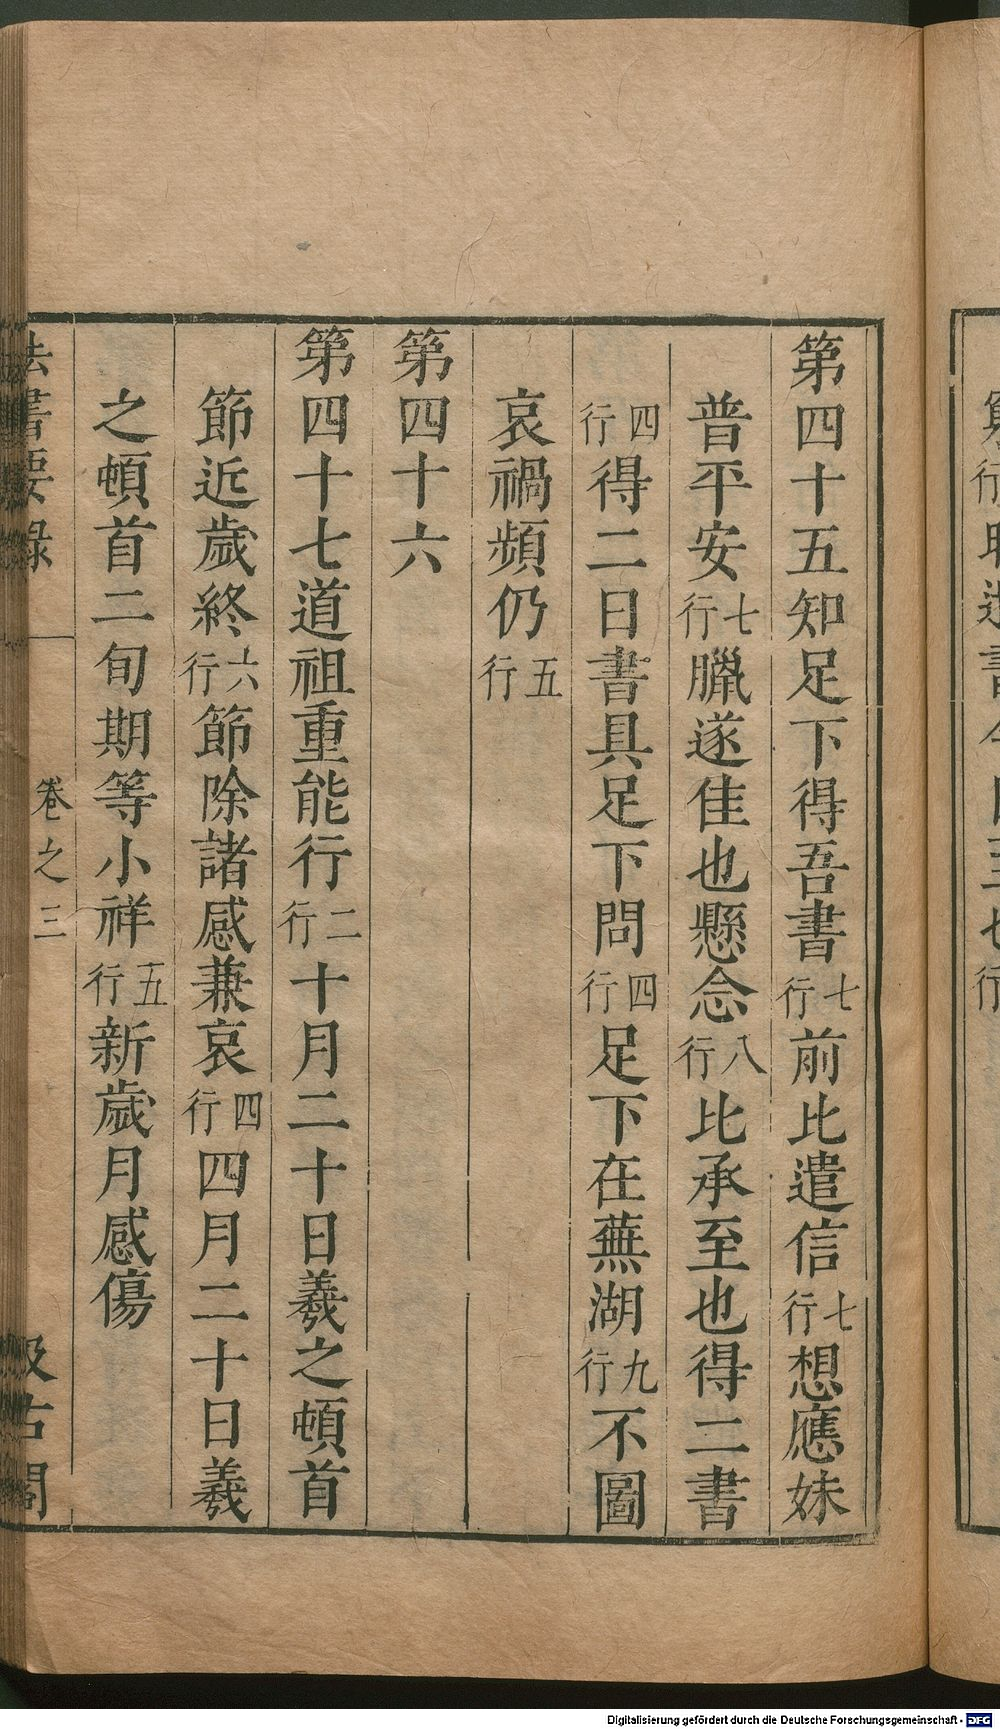 第四十五知足下得吾書七行前比遣信七行想應妹
普平安七行臘遂佳也懸念八行比承至也得二書
四行得二日書具足下問四行足下在蕪湖九行不圖
哀禍頻仍五行
第四十六
第四十七道祖重能行二行十月二十日羲之頓首
節近歲終六行節除諸感兼哀四行四月二十日羲
之頓首二旬期等小祥五行新歲月感傷
法書要錄
卷之三
汲古閣
Digitalisierung gefördert durch die Deutsche Forschungsgemeinschaft - DFG